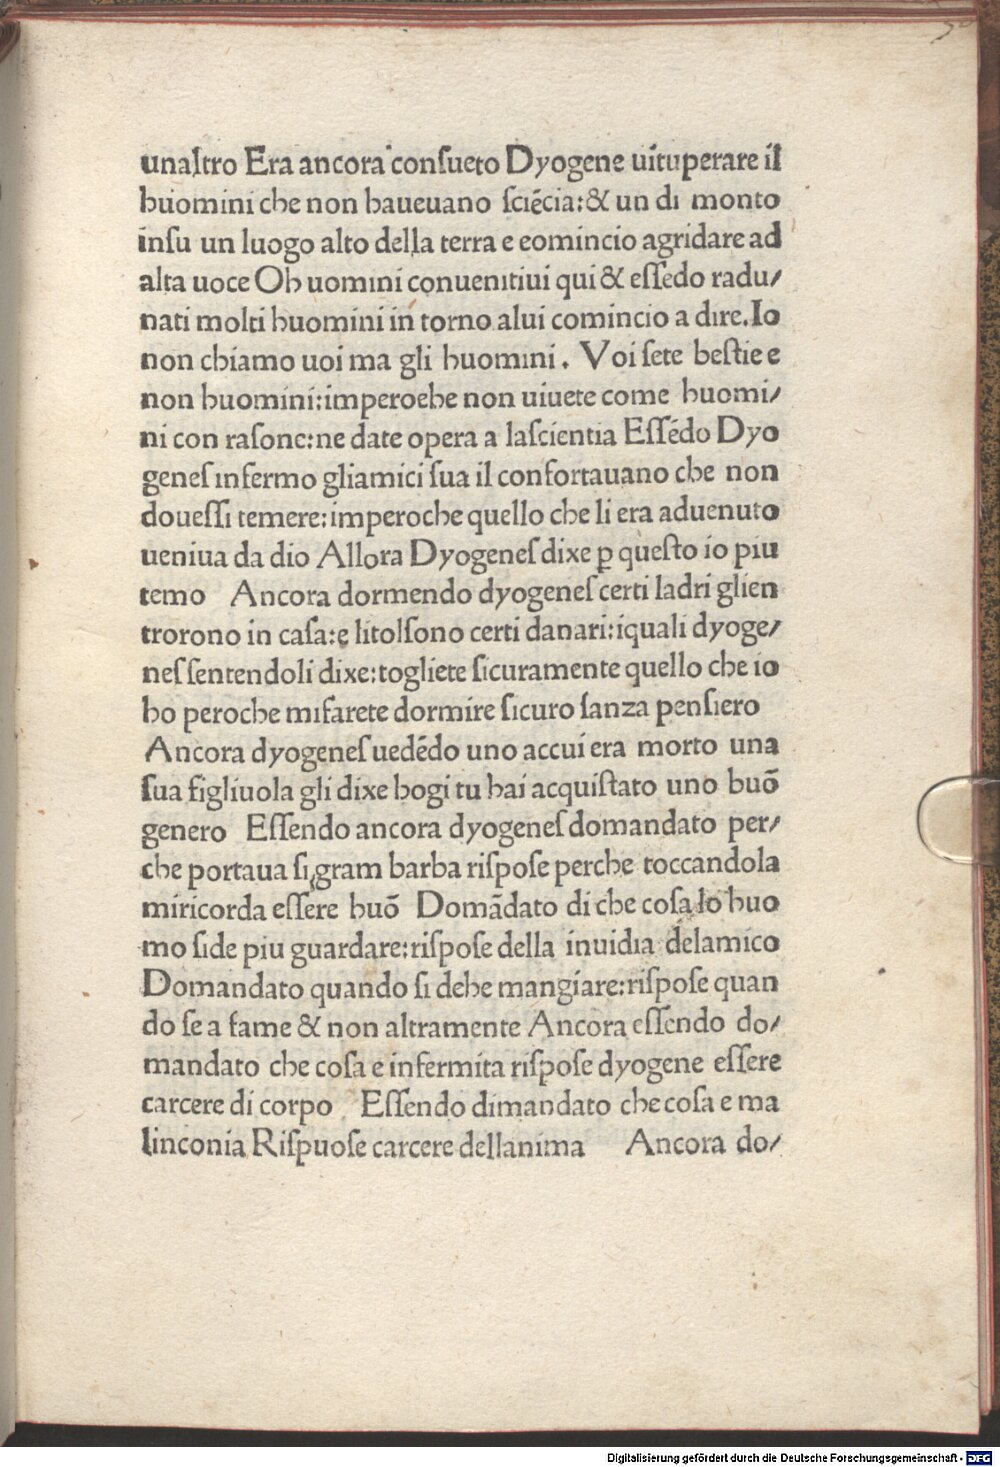 unaltro Era ancora conſueto Dyogene uituperare il
huomini che non haueuano ſciēcia:& un di monto
inſu un luogo alto della terra e eomincio agridare ad
alta uoce Oh uomini conuenitiui qui & eſſedo radu/
nati molti huomini in torno alui comincio a dire.Io
non chiamo uoi ma gli huomini. Voi ſete beſtie e
non huomini:imperoehe non uiuete come huomi/
ni con raſone:ne date opera a laſcientia Eſſēdo Dyo
geneſ infermo gliamici ſua il confortauano che non
doueſſi temere:imperoche quello che li era aduenuto
ueniua da dio Allora Dyogeneſ dixe ꝑ queſto io piu
temo Ancora dormendo dyogeneſ certi ladri glien
trorono in caſa:e litolſono certi danari:iquali dyoge/
neſ ſentendoli dixe:togliete ſicuramente quello che io
ho peroche mifarete dormire ſicuro ſanza penſiero
Ancora dyogeneſ uedēdo uno accui era morto una
ſua figliuola gli dixe hogi tu hai acquiſtato uno buō
genero Eſſendo ancora dyogeneſ domandato per/
che portaua ſi gram barba riſpoſe perche toccandola
miricorda eſſere huō Domādato di che coſa lo huo
mo ſide piu guardare:riſpoſe della inuidia delamico
Domandato quando ſi debe mangiare:riſpoſe quan
do ſe a fame & non altramente Ancora eſſendo do/
mandato che coſa e infermita riſpoſe dyogene eſſere
carcere di corpo Eſſendo dimandato che coſa e ma
linconia Riſpuoſe carcere dellanima Ancora do/
Digitalisierung gefördert durch die Deutsche Forschungsgemeinschaft - DFG